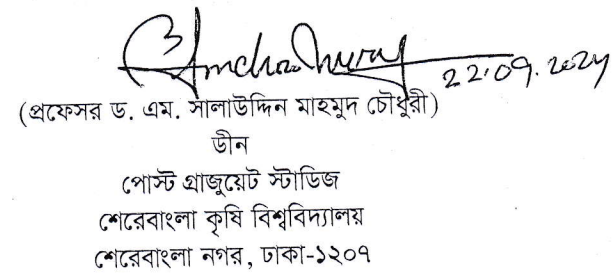 22.09.2024
(প্রফেসর ড. এম. সালাউদ্দিন মাহমুদ চৌধুরী)
ডীন
পোস্ট গ্রাজুয়েট স্টাডিজ
শেরেবাংলা কৃষি বিশ্ববিদ্যালয়
শেরেবাংলা নগর, ঢাকা-১২০৭